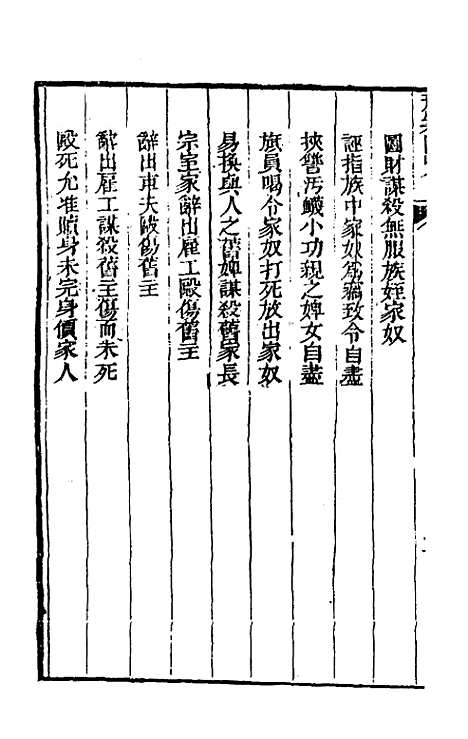 圖財謀殺無服族姪家奴
誣指族中家奴爲竊致令自盡
挾讐汚衊小功親之婢女自盡
旗員喝令家奴打死放出家奴
易換與人之舊婢謀殺舊家長
宗室家辭出雇工毆傷舊主
辭出車夫毆傷舊主
辭出雇工謀殺舊主傷而未死
毆死允准贖身未完身價家人